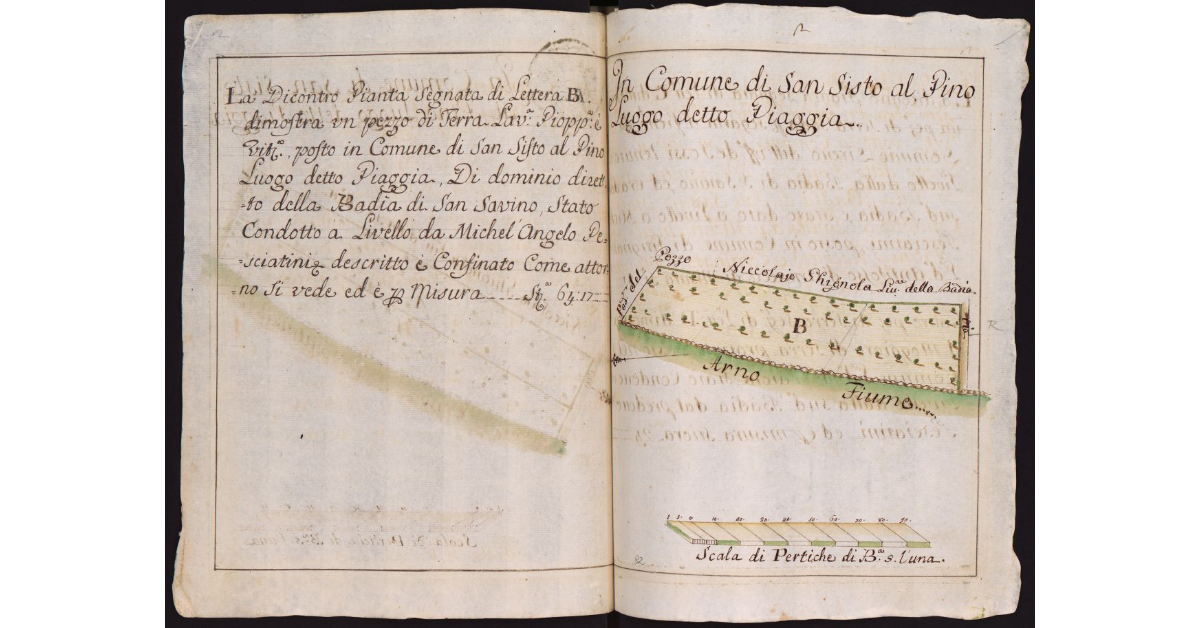 La Dicontro Pianta Segnata di Lettera B.
dimostra vn pezzo di Terra Lav.ª Piopp.ª è
Vit.ª, posto in Comune di San Sisto al Pino
Luogo detto Piaggia, Di dominio diret-
-to della Badia di San Savino, Stato
Condotto a Livello da Michel'Angelo Pe-
-sciatini, descritto è Confinato Come attor-
-no si vede ed è Misura St.ª 64:17
In Comune di San Sisto al Pino
Luogo detto Piaggia
del Pozzo
Niccolajo Ghignola Liv.ro della Badia.
B
Arno Fiume
1 5 0 10 20 30 40 50 60 70 80 90
Scala di Pertiche di B.ª 5. l'una.